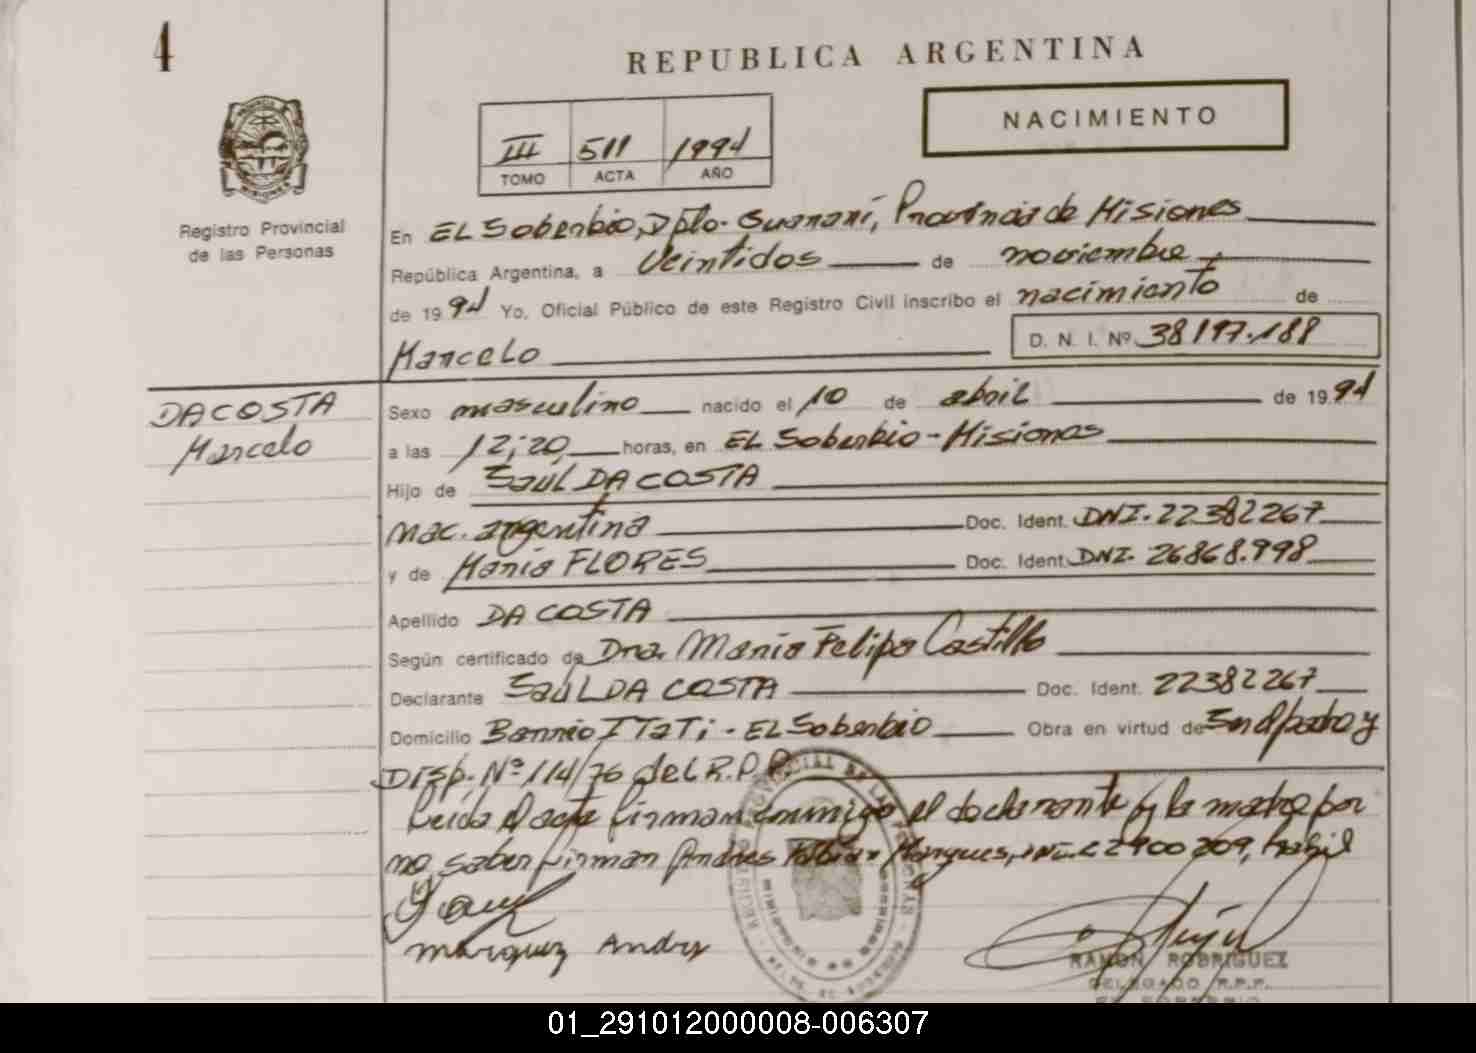 4
REPUBLICA ARGENTINA
NACIMIENTO
III 511 1994
TOMO ACTA AÑO
PROVINCIA DE MISIONES
Registro Provincial
de las Personas
En EL Soberbio, Dpto. Guaraní, Provincia de Misiones
República Argentina, a Veintidos de noviembre
de 1994 Yo, Oficial Público de este Registro Civil inscribo el nacimiento de
Marcelo D. N. I. Nº 38197.188
DA COSTA
Marcelo
Sexo masculino nacido el 10 de abril de 1994
a las 12:20 horas, en EL Soberbio - Misiones
Hijo de Saúl DA COSTA
nac. argentina Doc. Ident. DNI. 22382267
y de Maria FLORES Doc. Ident. DNI. 26868.998
Apellido DA COSTA
Según certificado de Dra. Maria Felipa Castillo
Declarante Saúl DA COSTA Doc. Ident. 22382267
Domicilio Barrio ITATI - EL Soberbio Obra en virtud de Ser el padre y
Disp. Nº 114/76 del R.P.P.
Leida el acta firman conmigo el declarante y la madre por
no saber firmar Andres Marques, 2900209, habil
Marquez Andres
RAMON RODRIGUEZ
DELEGADO R.P.P.
EL SOBERBIO
01_291012000008-006307